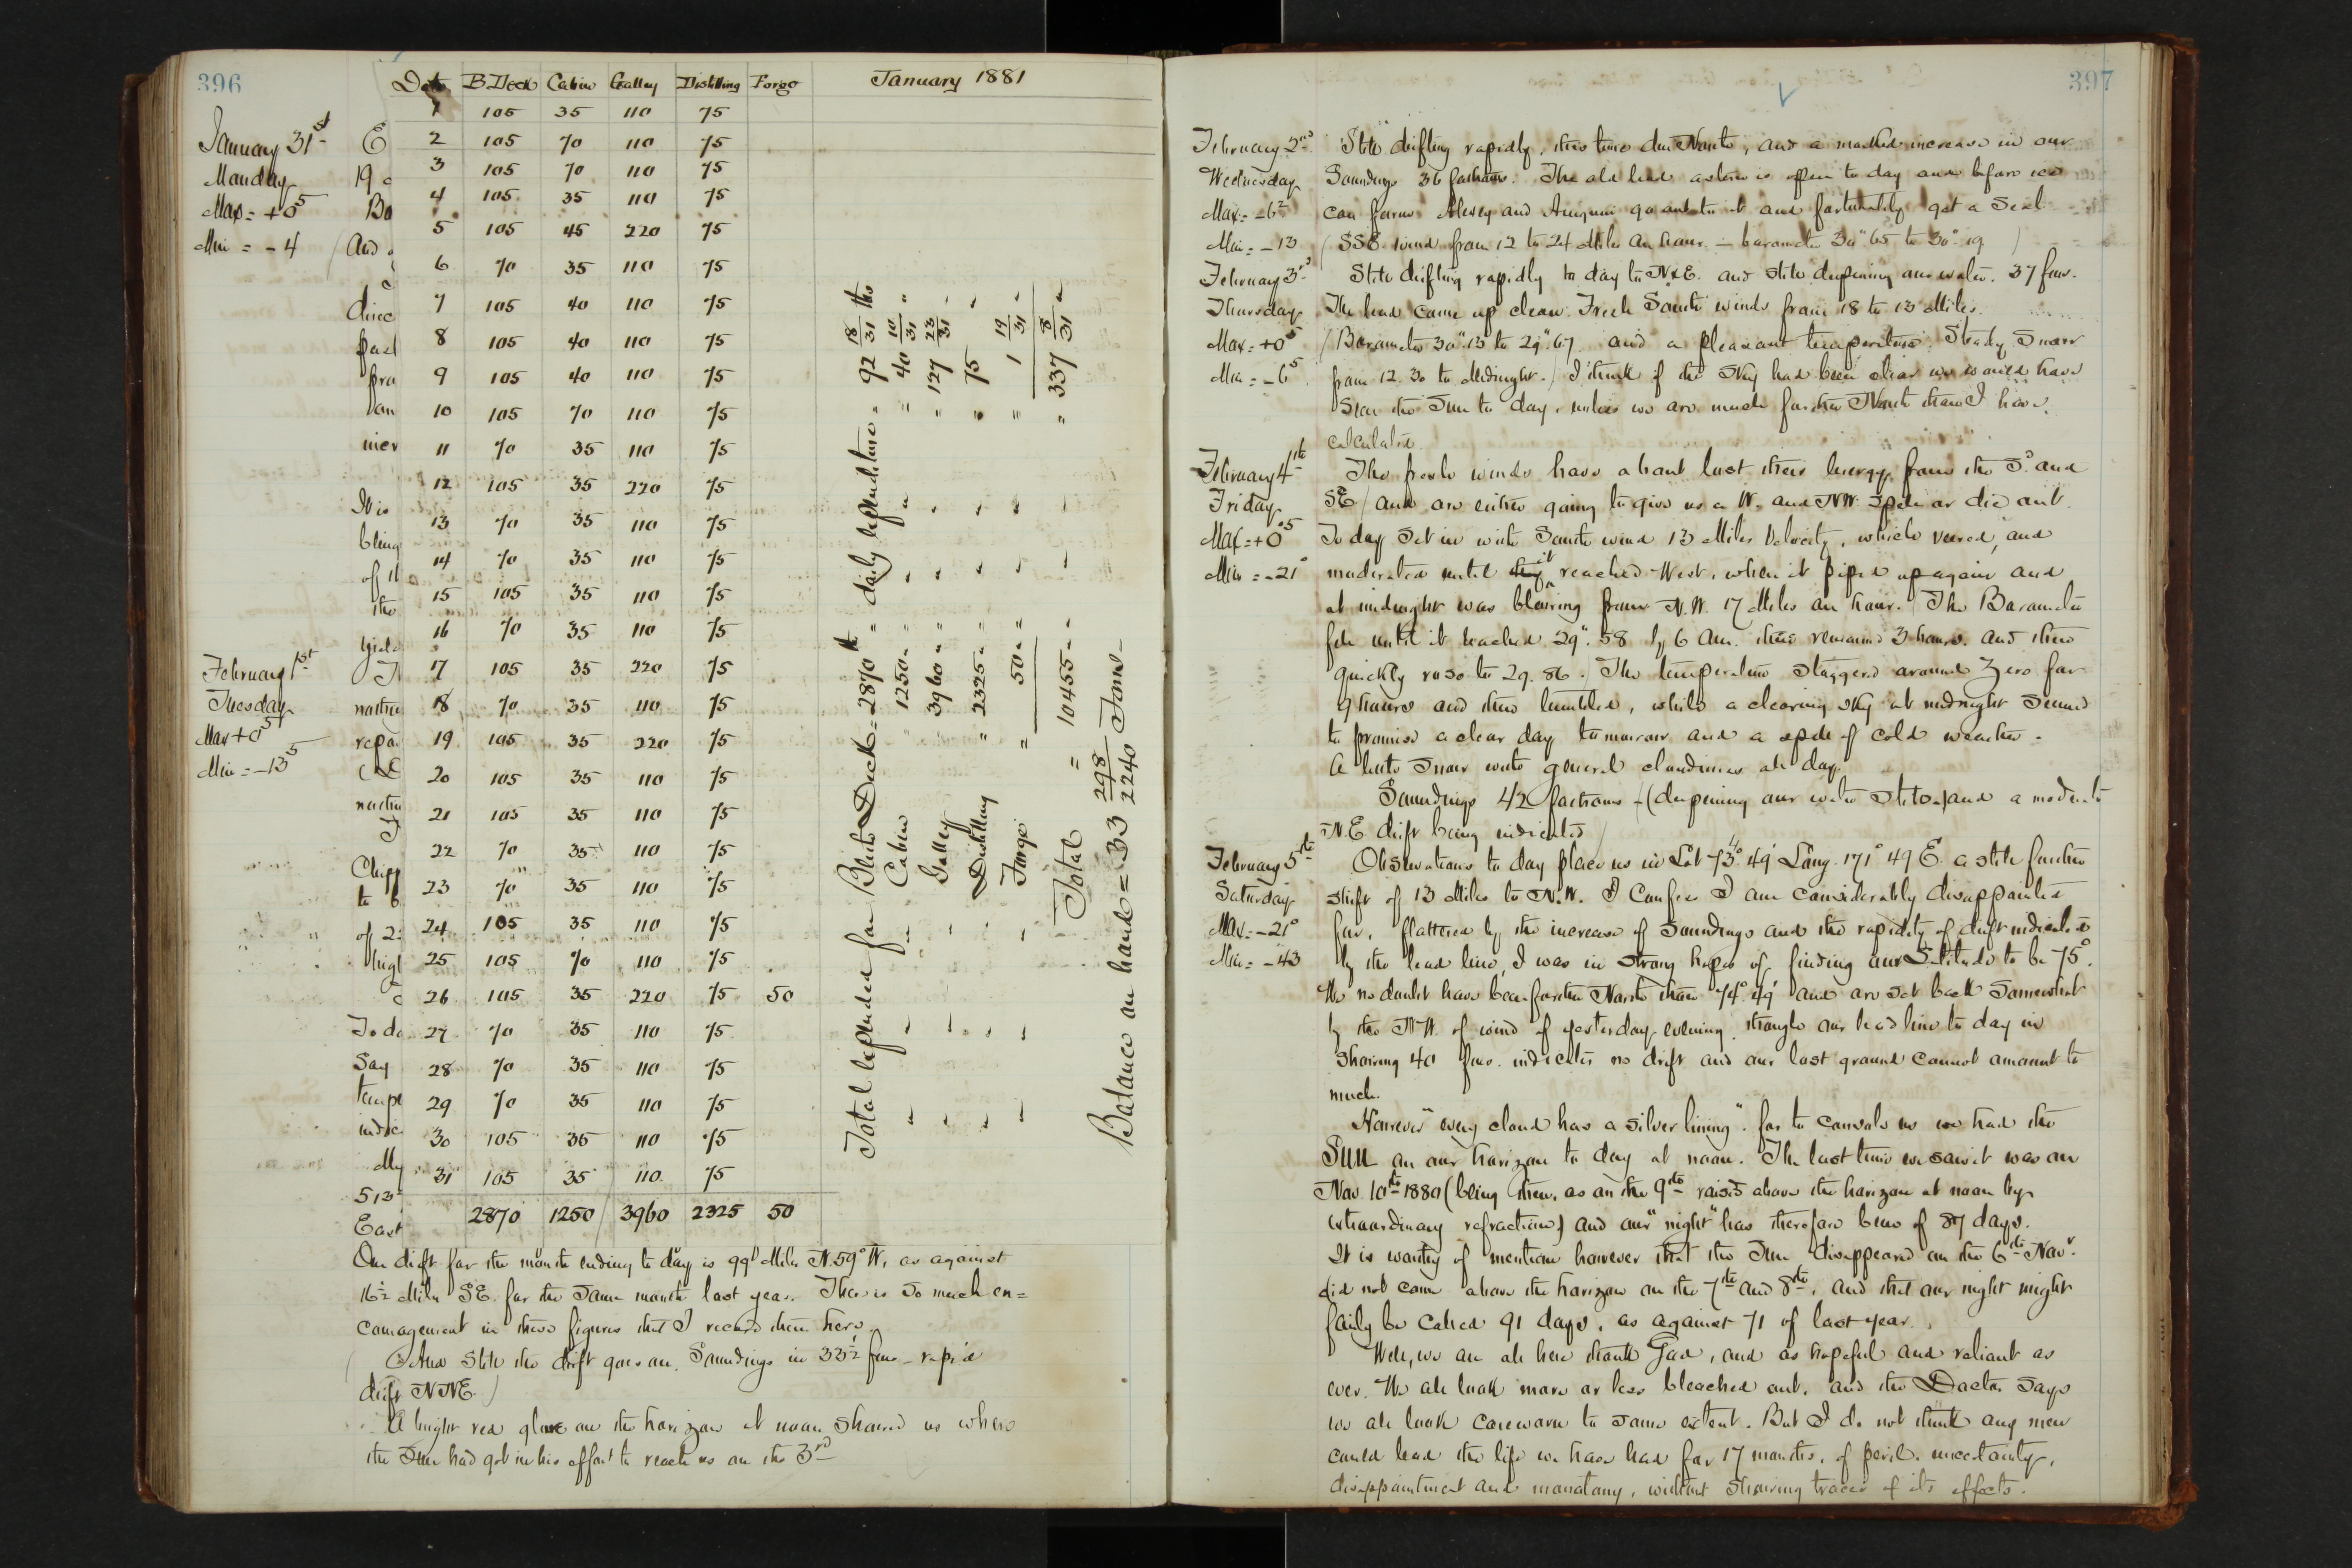 396
January 31st
Monday
Max = +0°5
Min = -4
February 1st
Tuesday
Max +0°5
Min = -13°5
E
19
Ba
And
direc
past
pra
an
incr
It is
bling
of it
the
yield
nactur
repa
Chipp
to b
of 2
high
To da
Say
tempe
indic
My
513
East
Date B Deck Cabin Galley Distilling Forge January 1881
1 105 35 110 75
2 105 70 110 75
3 105 70 110 75
4 105 35 110 75
5 105 45 220 75
6 70 35 110 75
7 105 40 110 75
8 105 40 110 75
9 105 40 110 75
10 105 70 110 75
11 70 35 110 75
12 105 35 220 75
13 70 35 110 75
14 70 35 110 75
15 105 35 110 75
16 70 35 110 75
17 105 35 220 75
18 70 35 110 75
19 105 35 220 75
20 105 35 110 75
21 105 35 110 75
22 70 35 110 75
23 70 35 110 75
24 105 35 110 75
25 105 70 110 75
26 105 35 220 75 50
27 70 35 110 75
28 70 35 110 75
29 70 35 110 75
30 105 35 110 75
31 105 35 110 75
2870 1250 3960 2325 50
Total expended for Birth Deck = 2870 lb = daily expenditure = 92 18/31 lbs
" " Cabin " 1250 " " " " " 40 10/31 "
" " Galley " 3960 " " " " " 127 23/31 "
" " Distilling " 2325 " " " " " 75 "
" " Forge " 50 " " " " " 1 19/31 "
Total = 10455 " " " 337 8/31 "
Balance on hand = 33 298/2240 Tons
Our drift for the month ending to day is 99 1/2 Miles N.59°W, as against
16 1/2 Miles S.E. for the same month last year. There is so much en=
couragement in these figures that I record them here.
And still the drift goes on. Soundings in 33 1/2 fms - rapid
drift NNE.)
A bright red glare on the horizon at noon showed us where
the Sun had got in his effort to reach us on the 3rd
397
February 2nd
Wednesday
Max = -6°2
Min = -13
Still drifting rapidly, this time due North, and a marked increase in our
Soundings 36 fathoms. The old lead astern is open to day and before ice
can form Alexey and Aneguin go out to it and fortunately get a Seal
(SSE wind from 12 to 24 Miles an hour - barometer 30".65 to 30".19)
February 3rd
Thursday
Max = +0°5
Min = -6°5
Still drifting rapidly to day to N&E. and still deepening our water. 37 fms.
The lead came up clean. Fresh South winds from 18 to 13 Miles.
(Barometer 30".13 to 29".67 and a pleasant temperature. Steady Snow
from 12.30 to Midnight.) I think if the Sky had been clear we would have
seen the Sun to day, unless we are much further North than I have
calculated.
February 4th
Friday
Max = +0°5
Min = -21°
The fresh winds have about lost their energy from the S° and
SE (and are either going to give us a W. and NW. spell or die out.
To day set in with South wind 13 Miles Velocity, which veered, and
moderated until they it reached West, when it piped up again and
at midnight was blowing from N.W. 17 Miles an hour. The Barometer
fell until it reached 29".58 by 6 Am. then remained 3 hours. and then
quickly rose to 29.86. The temperature staggered around Zero for
9 hours and then tumbled, while a clearing sky at midnight seemed
to promise a clear day tomorrow and a spell of cold weather.
A little Snow with general cloudiness all day.
Soundings 42 fathoms - (deepening our water still) and a moderate
N.E. drift being indicated)
February 5th
Saturday
Max = -21°
Min = -43
Observations to day place us in Lat 73°.49' Long. 171°.49 E. a still further
shift of 13 Miles to N.W. I Confess I am considerably disappointed
for, flattered by the increase of Soundings and the rapidity of drift indicated
by the lead line, I was in strong hopes of finding our Latitude to be 75°.
We no doubt have been further North than 74°.49' and are set back somewhat
by the N.W. wind of yesterday evening, though our lead line to day in
showing 40 fms. indicates no drift and our lost ground cannot amount to
much.
However "every cloud has a silver lining". for to console us we had the
Sun on our horizon to day at noon. The last time we saw it was on
Nov. 10th 1880 (being then, as on the 9th raised above the horizon at noon by
extraordinary refraction) and our "night" has therefore been of 87 days.
It is worthy of mention however that the Sun disappeared on the 6th Novr.
did not come above the horizon on the 7th and 8th, and that our night might
fairly be called 91 days, as against 71 of last year.
Well, we are all here thank God, and as hopeful and valiant as
ever. We all look more or less bleached out. and the Doctor says
we all look careworn to some extent. But I do not think any men
could lead the life we have had for 17 months, of peril, uncertainty,
disappointment and monotony, without showing traces of its effects.